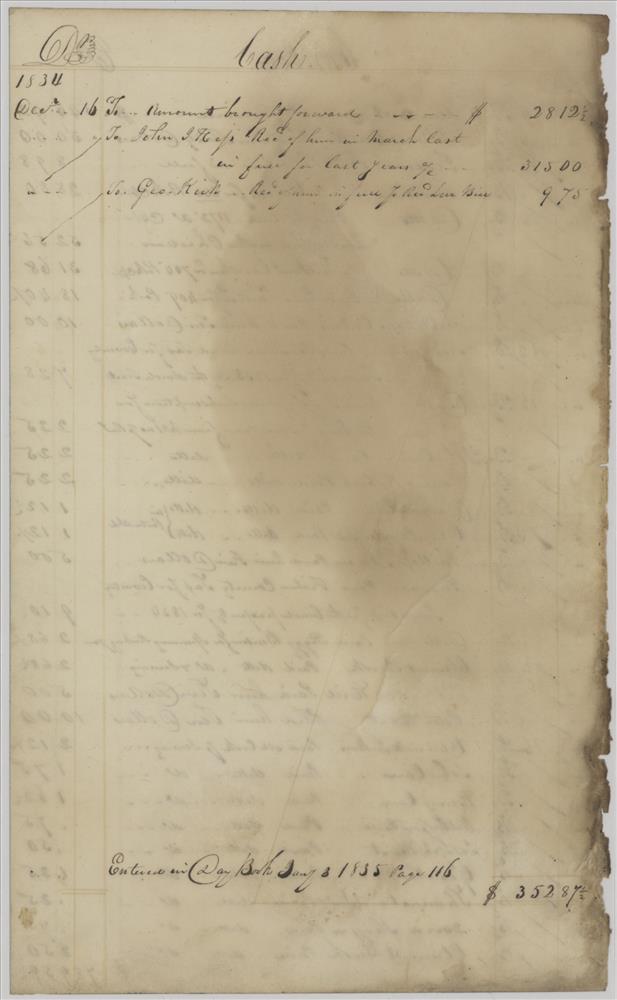 Dr Cash
1834
Decr. 16 To Amount brought forward $ 28 12½
" To John I Hess Recd of him in March last
in full for last years a/c 315 00
" To Geo. Kirk Recd of him in full 9 75
Entered in Day Book Jany 3 1835 Page 116
$ 352 87½